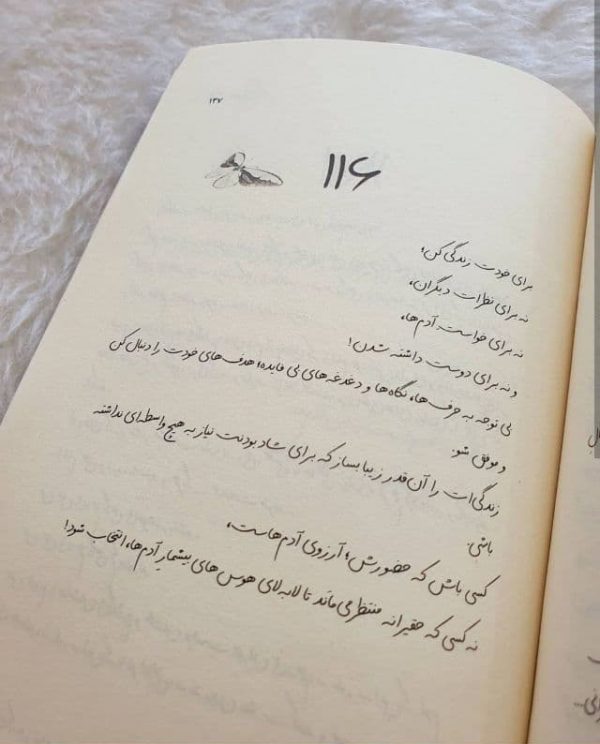 ۱۳۷
۱۱۶
برای خودت زندگی کن؛
نه برای نظرات دیگران،
نه برای خواست آدم‌ها،
و نه برای دوست داشته شدن!
بی توجه به حرف‌ها، نگاه‌ها و دغدغه‌های بی فایده؛ هدف‌های خودت را دنبال کن
و موفق شو.
زندگی‌ات را آن قدر زیبا بساز که برای شاد بودنت نیاز به هیچ واسطه‌ای نداشته
باشی.
کسی باش که حضورش؛ آرزوی آدم‌هاست،
نه کسی که حقیرانه منتظر می‌ماند تا لابه‌لای هوس‌های بیشمارِ آدم‌ها، انتخاب شود!